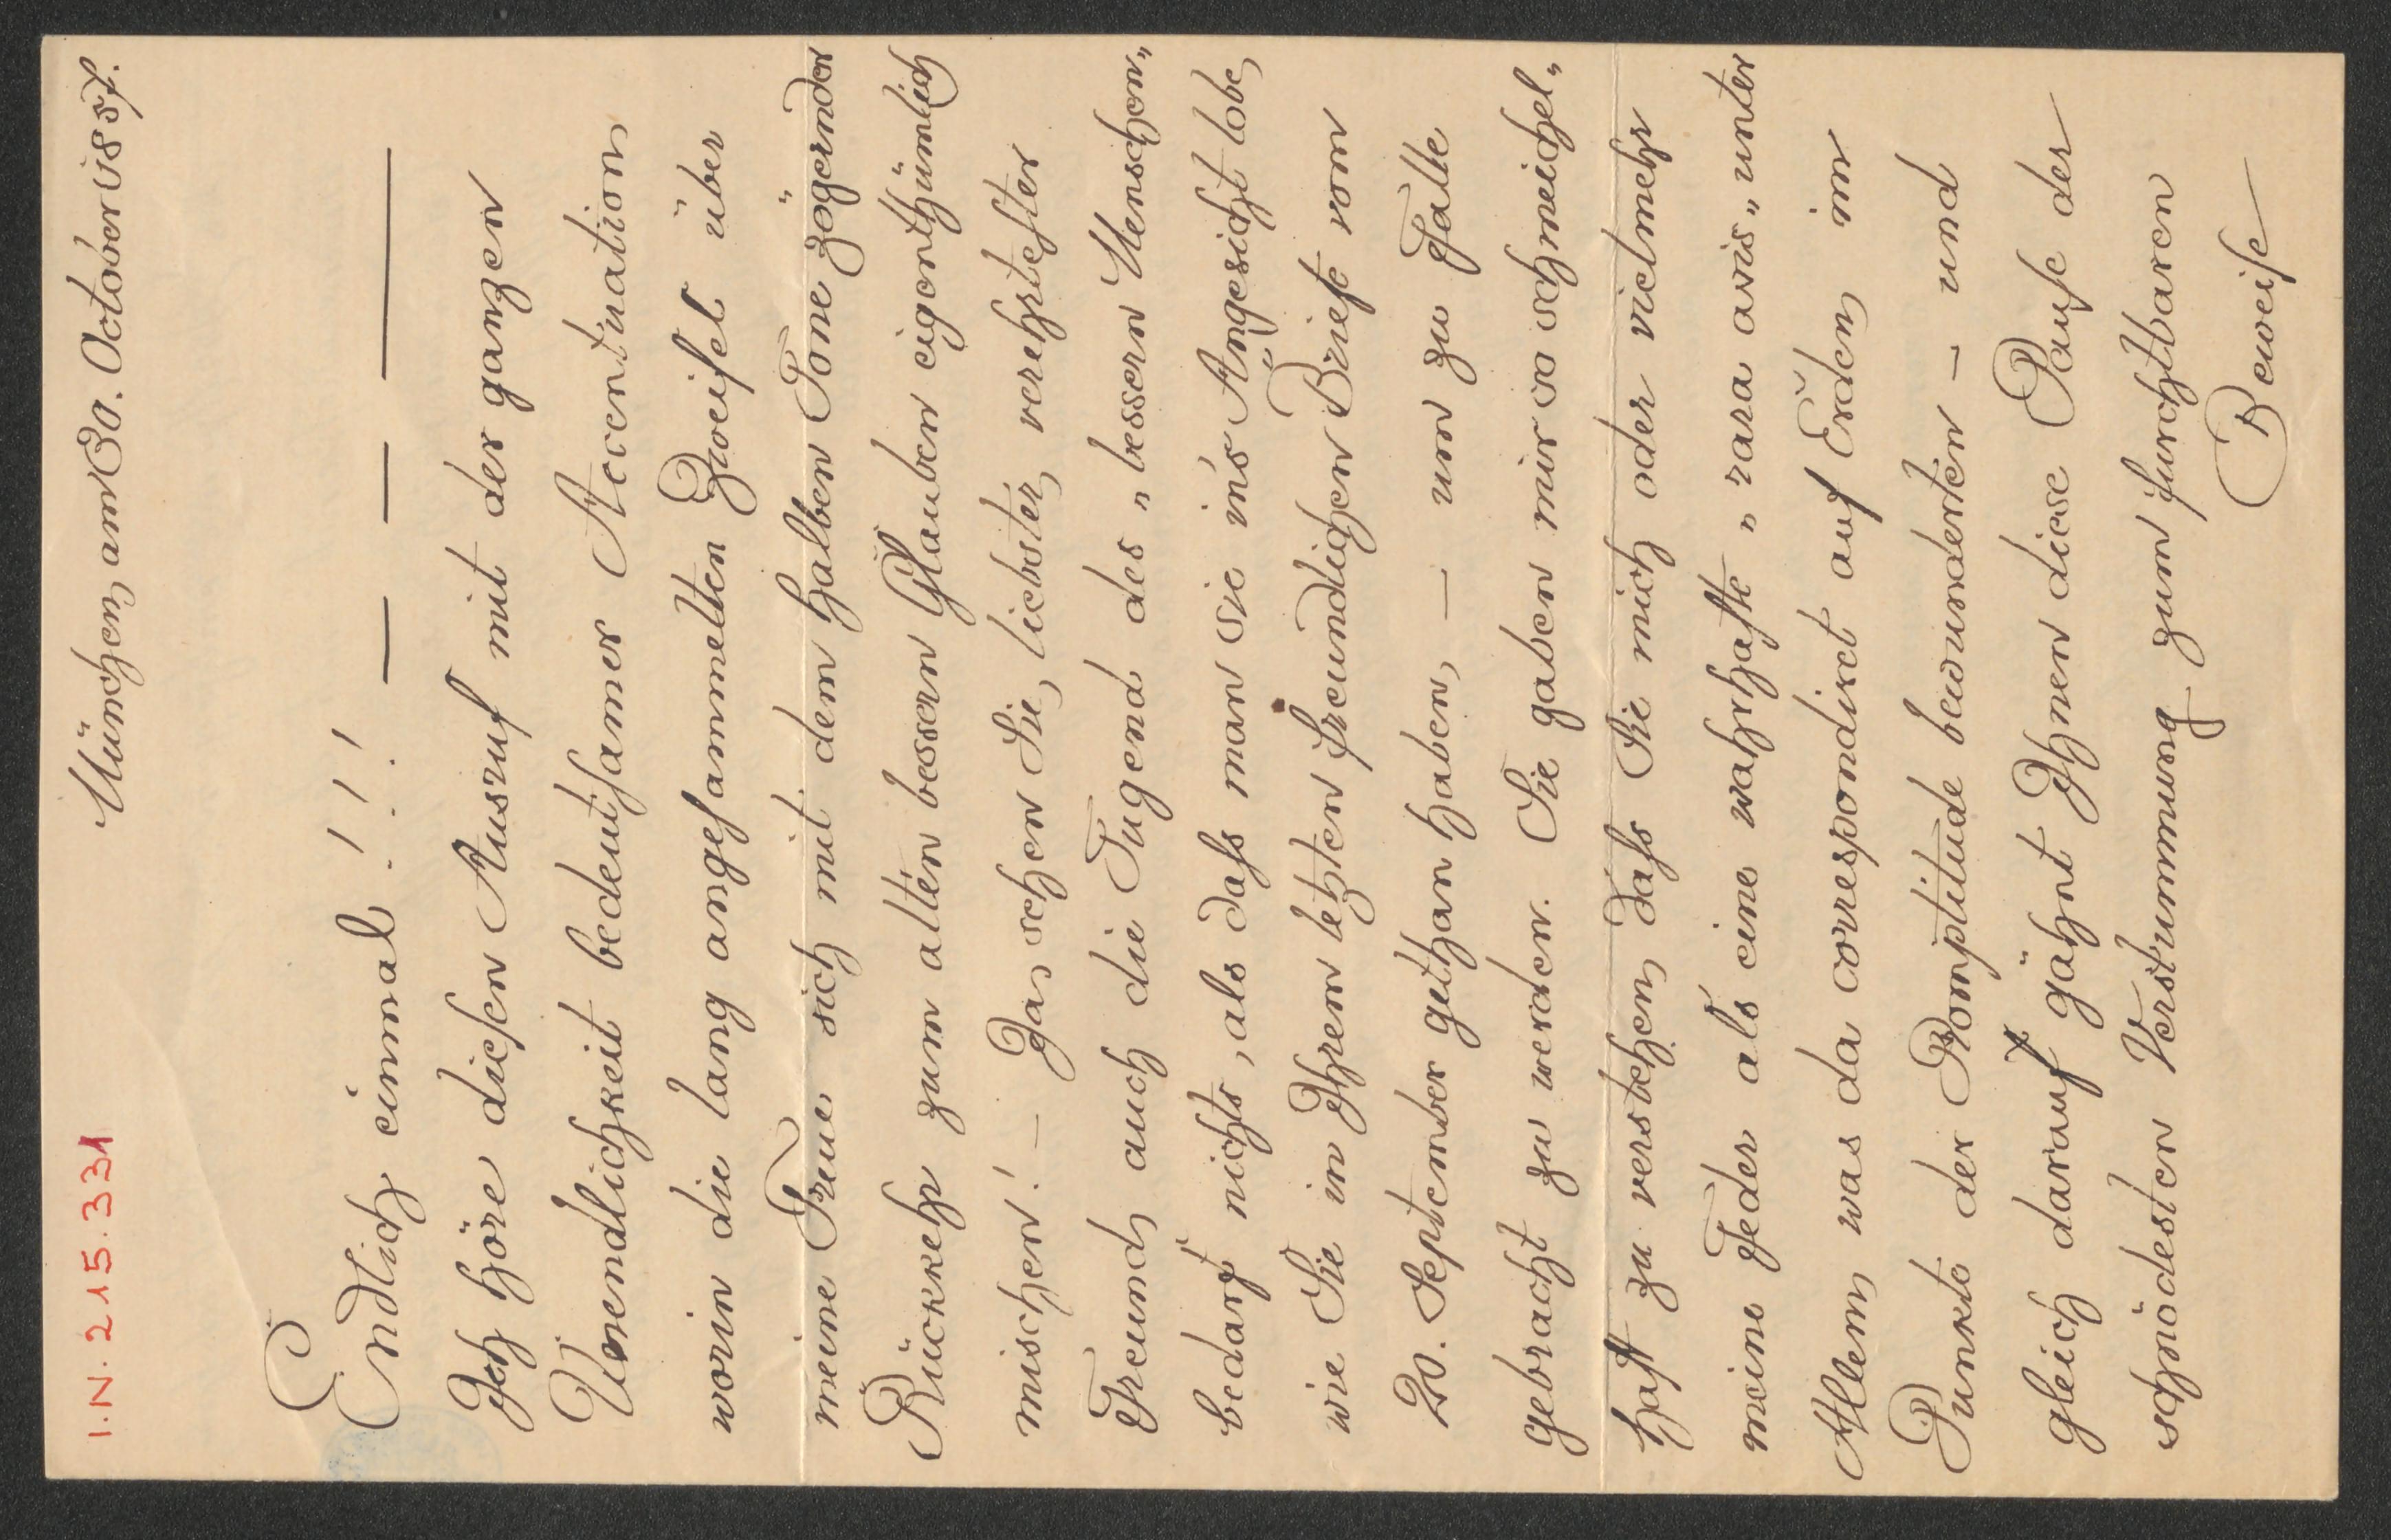 I.N. 215.331
München, am 30. October 1857.
Endlich einmal!!! — — ——
Ich höre diesen Ausruf mit der ganzen
Unendlichkeit bedeutsamer Accentuation,
worin die lang angesammelten Zweifel über
meine Treue sich mit dem halben Tone zögernder
Rückkehr zum alten bessern Glauben eigenthümlich
mischen! – Ja, sehen Sie, liebster, verehrtester
Freund, auch die Tugend des „bessern Menschen„
bedarf nichts, als daß man sie in's Angesicht lobe,
wie Sie in Ihrem letzten freundlichen Briefe vom
20. September gethan haben, – um zu Falle
gebracht zu werden. Sie gaben mir so schmeichel„
haft zu verstehen, daß Sie mich oder vielmehr
meine Feder als eine wahrhafte „rara avis„ unter
Allem, was da correspondirt auf Erden, im
Punkto der Promptitude bewunderten – und
gleich darauf gähnt Ihnen diese Pause der
schnödesten Verstummung zum furchtbaren
Beweise